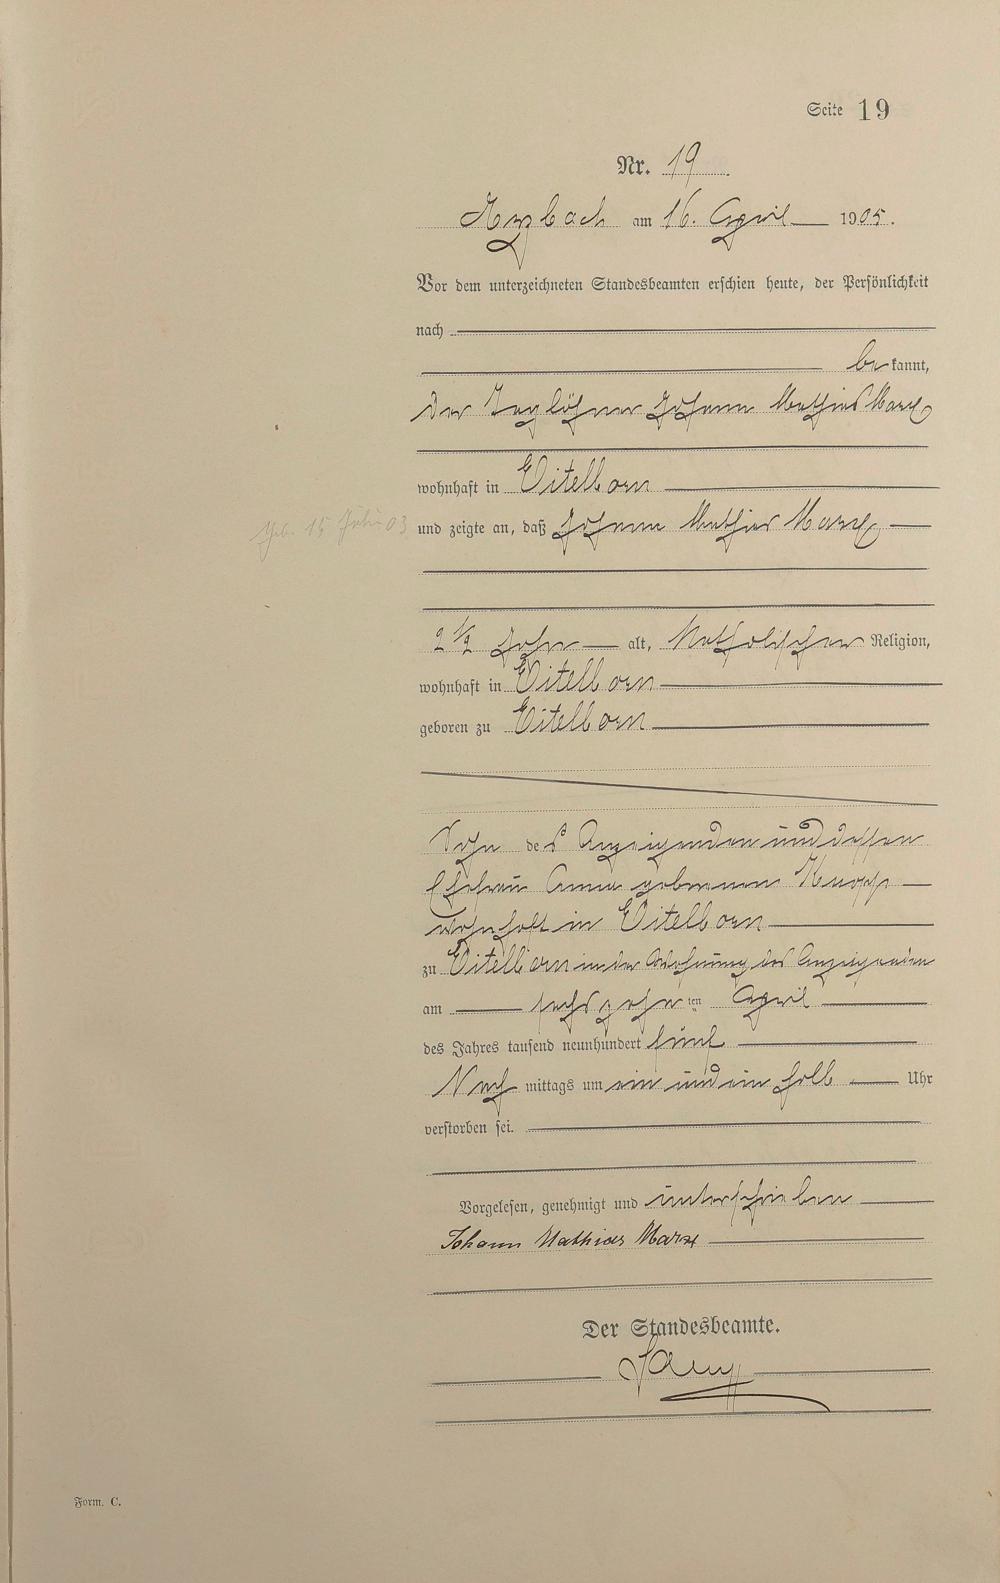 Seite 19
Nr. 19
Arzbach am 16. April 1905.
Vor dem unterzeichneten Standesbeamten erschien heute, der Persönlichkeit
nach
be kannt,
der Taglöhner Johann Mathias Marx
wohnhaft in Eitelborn
geb. 15 03
und zeigte an, daß Johann Mathias Marx
2 1/2 Jahre alt, Katholischer Religion,
wohnhaft in Eitelborn
geboren zu Eitelborn
Sohn des Anzeigenden und dessen
Ehefrau Anna geborenen Knopp
wohnhaft in Eitelborn
zu Eitelborn in der Wohnung des Anzeigenden
am sechszehn ten April
des Jahres tausend neunhundert fünf
Nach mittags um ein und ein halb Uhr
verstorben sei.
Vorgelesen, genehmigt und unterschrieben
Johann Mathias Marx
Der Standesbeamte.
Form. C.